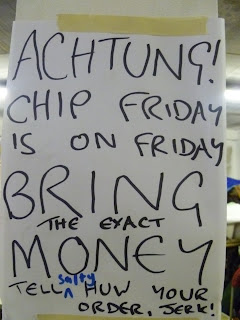 ACHTUNG!
CHIP FRIDAY
IS ON FRIDAY
BRING
THE EXACT
MONEY
TELL salty HUW YOUR
ORDER, JERK!